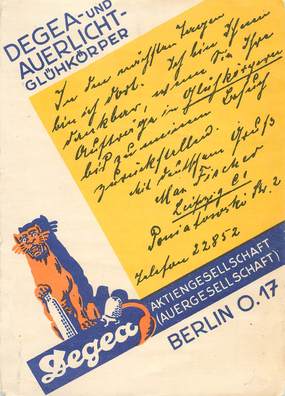 DEGEA- UND
AUERLICHT-
GLÜHKÖRPER
In den nächsten Tagen
bin ich dort. Ich bin Ihnen
dankbar, wenn Sie Ihre
Aufträge in Glühkörpern
bis zu meinem Besuch
zurückstellen.
Mit deutschem Gruß
Max Fischer
Leipzig C1
Poniatowski Str. 2
Telefon 22852
Degea
AKTIENGESELLSCHAFT
(AUERGESELLSCHAFT)
BERLIN O.17